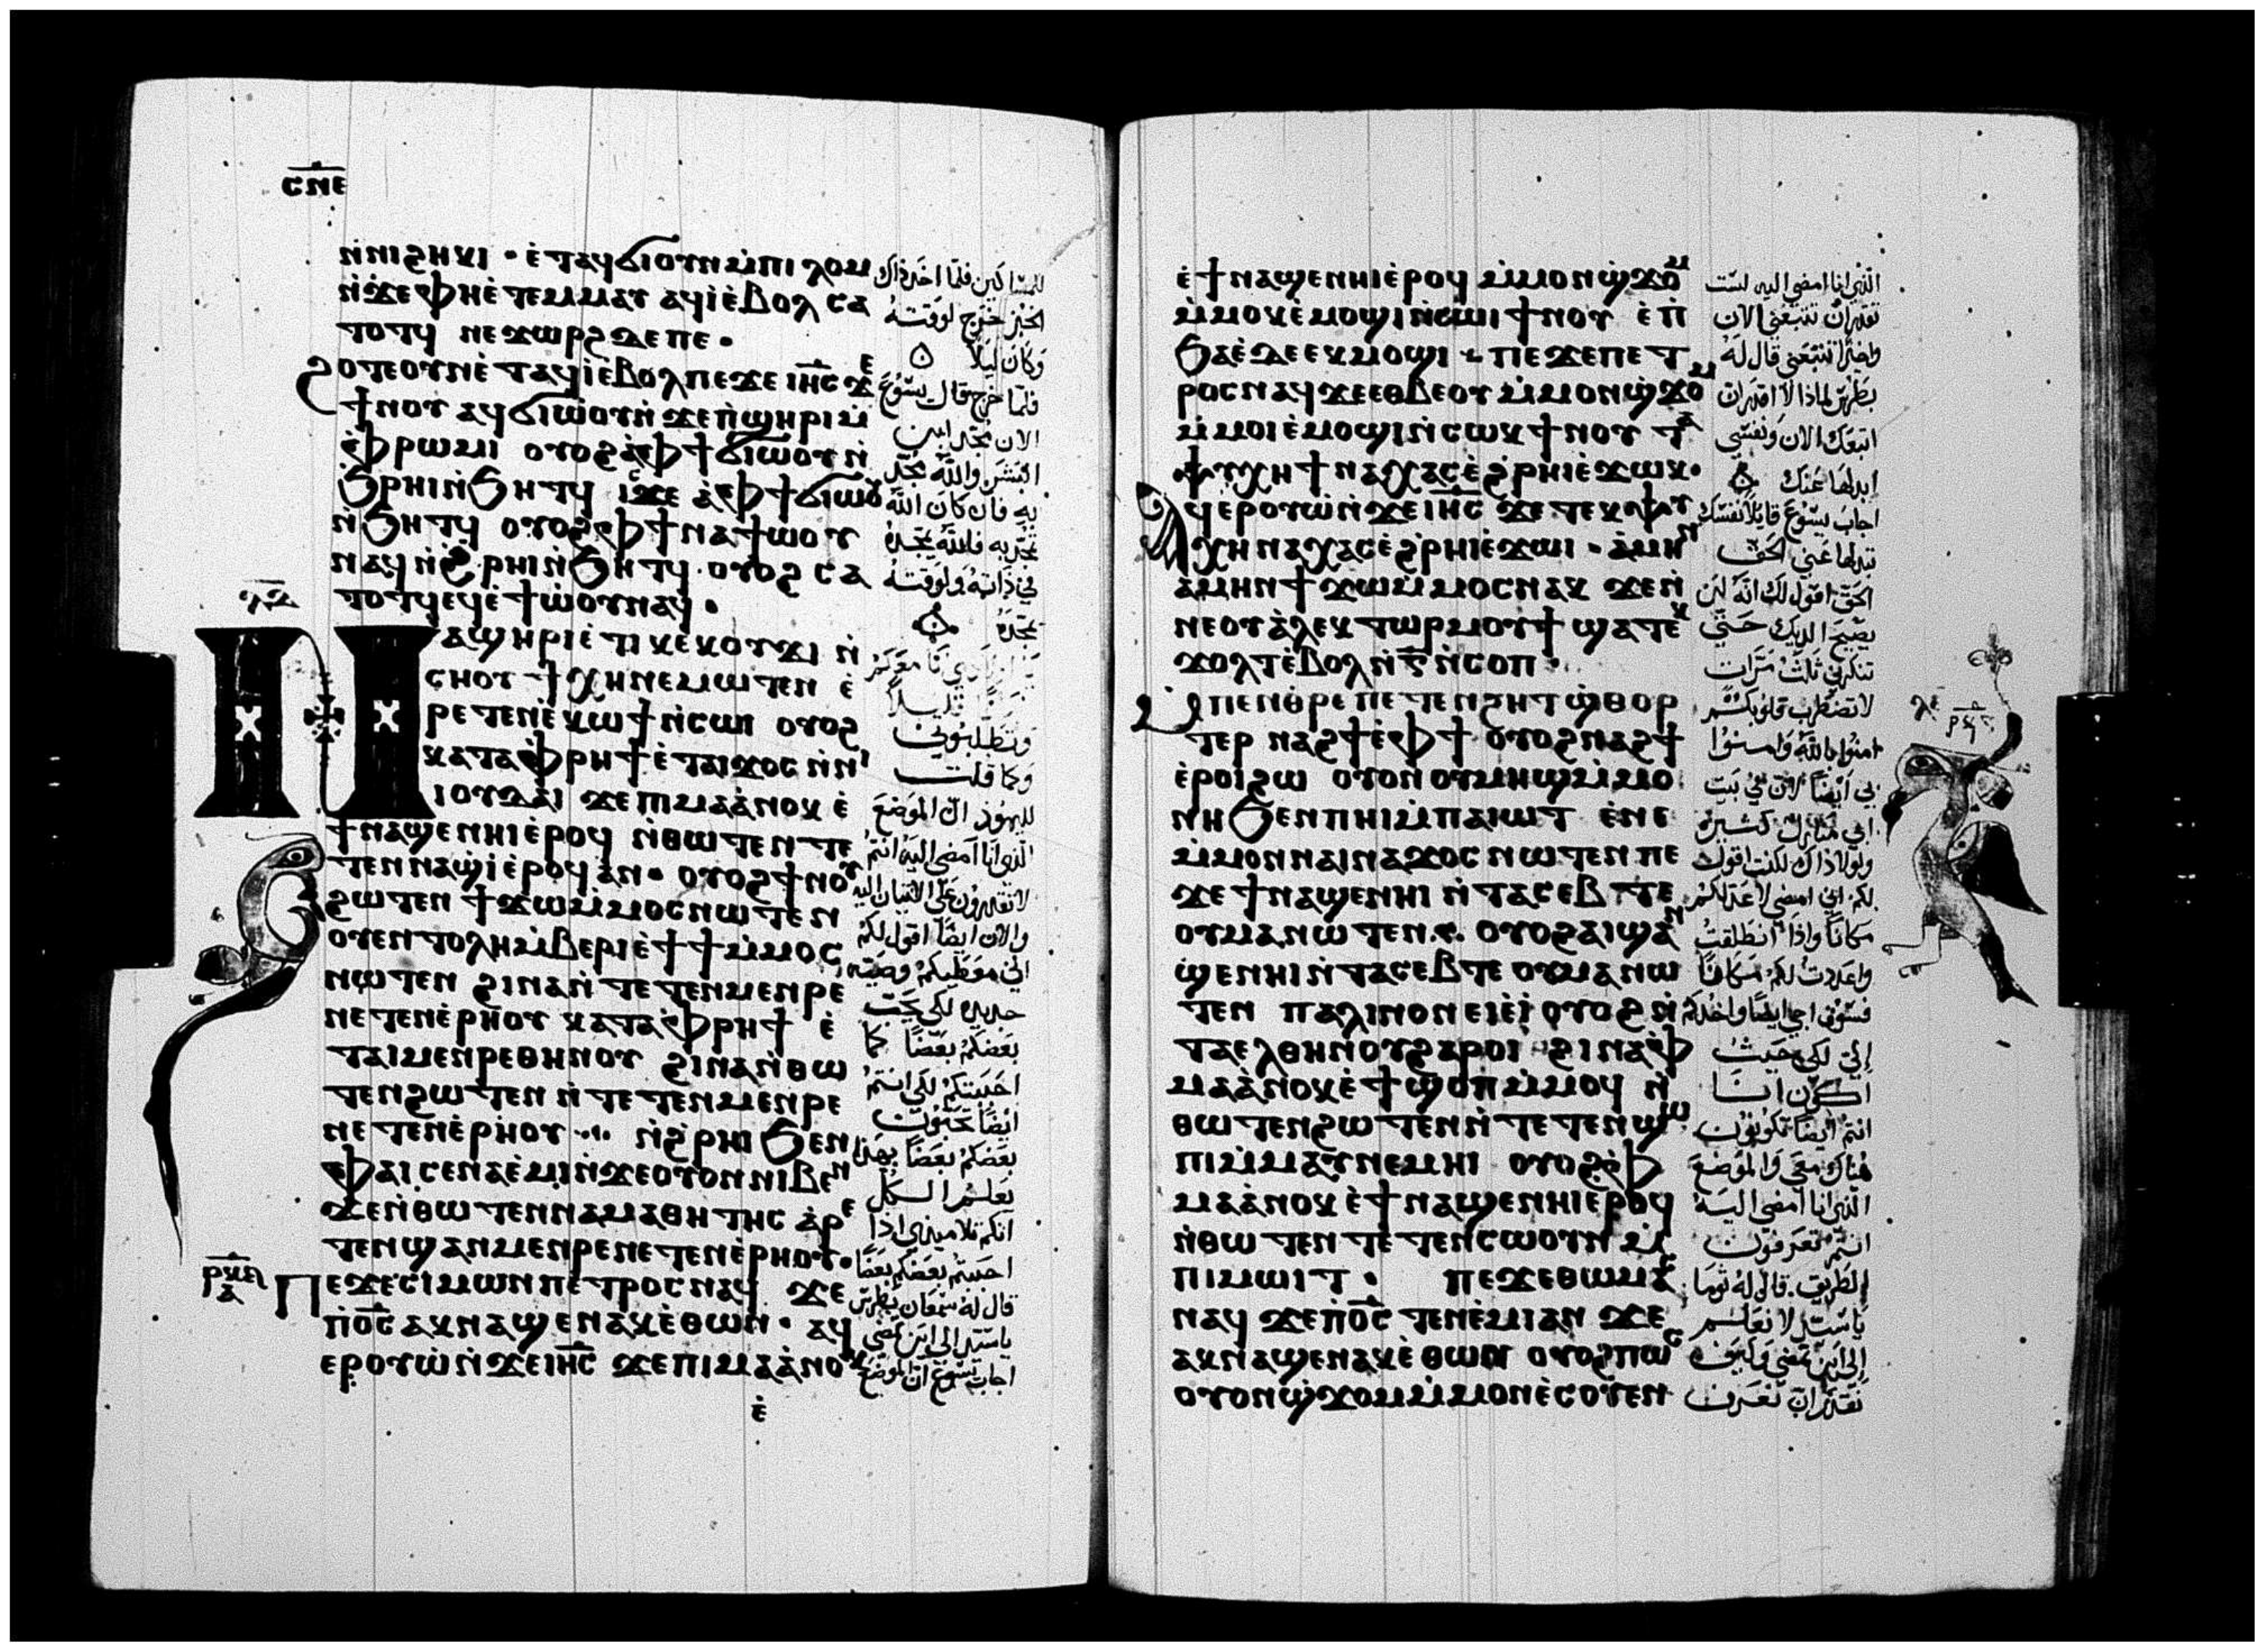 ⲥⲛⲉ
ⲛ̀ⲛⲓϩⲏⲕⲓ · ⲉ̀ⲧⲁϥϭⲓⲟⲩⲛⲙ̀ⲡⲓⲗⲱⲙ
ⲛ̀ϫⲉⲫⲏⲉ̀ⲧⲉⲙⲙⲁⲩ ⲁϥⲓ̀ⲉ̀ⲃⲟⲗ ⲥⲁ
ⲧⲟⲧϥ ⲛⲉϫⲱⲣϩ ⲇⲉ ⲡⲉ ·
ϩⲟⲧⲉⲟⲩⲛⲉ̀ⲧⲁϥⲓ̀ⲉ̀ⲃⲟⲗⲡⲉϫⲉ ⲓⲏ̅ⲥ̅ ϫⲉ
ϯⲛⲟⲩ ⲁϥϭⲓⲱ̀ⲟⲩⲛ̀ϫⲉⲡ̀ϣⲏⲣⲓⲙ̀
ⲫ̀ⲣⲱⲙⲓ ⲟⲩⲟϩⲁ̀ⲫϯϭⲓⲱⲟⲩⲛ̀
ϧⲣⲏⲓⲛ̀ϧⲏⲧϥ ⲓⲥϫⲉ ⲁ̀ⲫϯϭⲓⲱⲟⲩ
ⲛ̀ϧⲏⲧϥ ⲟⲩⲟϩⲫϯⲛⲁϯⲱⲟⲩ
ⲛⲁϥⲛ̀ϩ̀ⲣⲏⲓⲛ̀ϧⲏⲧϥ · ⲟⲩⲟϩ ⲥⲁ
ⲧⲟⲧϥⲉϥⲉ̀ϯⲱ̀ⲟⲩⲛⲁϥ ·
ⲗⲇ
ⲛⲁϣⲏⲣⲓⲉ̀ⲧⲓ ⲕⲉⲕⲟⲩϫⲓ ⲛ̀
ⲥⲏⲟⲩ ϯⲭⲏⲛⲉⲙⲱⲧⲉⲛ ⲉ̀
ⲣⲉⲧⲉⲛⲉ̀ⲕⲱϯⲛ̀ⲥⲱⲓ ⲟⲩⲟϩ
ⲕⲁⲧⲁⲫ̀ⲣⲏϯⲉ̀ⲧⲁⲓϫⲟⲥ ⲛ̀ⲛⲓ
ⲓⲟⲩⲇⲁⲓ ϫⲉⲡⲓⲙⲁⲁ̀ⲛⲟⲕ ⲉ̀
ϯⲛⲁϣⲉⲛⲏⲓⲉ̀ⲣⲟϥ ⲛ̀ⲑⲱⲧⲉⲛⲧⲉ
ⲧⲉⲛⲛⲁϣ̀ⲓ̀ⲉ̀ⲣⲟϥⲁⲛ · ⲟⲩⲟϩϯⲛⲟⲩ
ϩⲱⲧⲉⲛ ϯϫⲱⲙ̀ⲙⲟⲥⲛⲱⲧⲉⲛ
ⲟⲩⲉⲛⲧⲟⲗⲏⲙ̀ⲃⲉⲣⲓⲉ̀ϯϯⲙ̀ⲙⲟⲥ
ⲛⲱⲧⲉⲛ ϩⲓⲛⲁⲛ̀ⲧⲉⲧⲉⲛⲙⲉⲛⲣⲉ
ⲛⲉⲧⲉⲛⲉ̀ⲣⲏⲟⲩ ⲕⲁⲧⲁⲫ̀ⲣⲏϯ ⲉ̀
ⲧⲁⲓⲙⲉⲛⲣⲉⲑⲏⲛⲟⲩ ϩⲓⲛⲁⲛ̀ⲑⲱ
ⲧⲉⲛϩⲱⲧⲉⲛ ⲛ̀ⲧⲉⲧⲉⲛⲙⲉⲛⲣⲉ
ⲛⲉⲧⲉⲛⲉ̀ⲣⲏⲟⲩ ·· ⲛ̀ϩ̀ⲣⲏⲓ ϧⲉⲛ
ⲫⲁⲓ ⲥⲉⲛⲁⲉ̀ⲙⲓⲛ̀ϫⲉⲟⲩⲟⲛⲛⲓⲃⲉⲛ
ϫⲉⲛ̀ⲑⲱⲧⲉⲛⲛⲁⲙⲁⲑⲏⲧⲏⲥ ⲁ̀ⲣⲉ
ⲧⲉⲛϣⲁⲛⲙⲉⲛⲣⲉⲛⲉⲧⲉⲛⲉ̀ⲣⲏⲟⲩ ·
ⲡⲉϫⲉⲥⲓⲙⲱⲛⲡⲉⲧⲣⲟⲥ ⲛⲁϥ ϫⲉ
ⲡ̀ⲟ̅ⲥ̅ ⲁⲕⲛⲁϣⲉⲛⲁⲕⲉ̀ⲑⲱⲛ · ⲁϥ
ⲉⲣⲟⲩⲱ̀ⲛ̀ϫⲉⲓⲏ̅ⲥ̅ ϫⲉⲡⲓⲙⲁⲁ̀ⲛⲟⲕ
ⲉ̀
للمساكين فلما اخذ ذاك
الخبز خرج لوقته
وكان ليلا
فلما خرج قال يسوع
الان تمجد ابن
البشر والله تمجد
به فان كان الله
تمجد به فالله يمجده
في ذاته ولوقته
يمجده
وتطلبوني
وكما قلت
لليهود ان الموضع
الذي انا امضي اليه انتم
لا تقدرون على الاتيان اليه
والان ايضا اقول لكم
اني معطيكم وصية
جديدة لكي يحب
بعضكم بعضا كما
احببتكم لكي انتم
ايضا تحبون
بعضكم بعضا بهذا
يعلم الكل
انكم تلاميذي اذا
احببتم بعضكم بعضا
قال له سمعان بطرس
يا سيد الى اين تمضي
اجاب يسوع ان الموضع
ⲉ̀ϯⲛⲁϣⲉⲛⲏⲓⲉ̀ⲣⲟϥ ⲙ̀ⲙⲟⲛϣ̀ϫⲟⲙ
ⲙ̀ⲙⲟⲕⲉ̀ⲙⲟϣⲓⲛ̀ⲥⲱⲓ ϯⲛⲟⲩ ⲉ̀ⲡ̀
ϧⲁⲉ̀ⲇⲉⲉⲕⲙⲟϣⲓ · ⲡⲉϫⲉⲡⲉⲧ
ⲣⲟⲥⲛⲁϥϫⲉⲉⲑⲃⲉⲟⲩ ⲙ̀ⲙⲟⲛϣ̀ϫⲟⲙ
ⲙ̀ⲙⲟⲓⲉ̀ⲙⲟϣⲓⲛ̀ⲥⲱⲕ ϯⲛⲟⲩ ⲧⲁ
ⲯⲩⲭⲏ ϯⲛⲁⲭⲁⲥⲉ̀ϩ̀ⲣⲏⲓⲉ̀ϫⲱⲕ ·
ⲁϥⲉⲣⲟⲩⲱ̀ⲛ̀ϫⲉⲓⲏ̅ⲥ̅ ϫⲉⲧⲉⲕⲯⲩ
ⲭⲏⲛⲁⲭⲁⲥⲉ̀ϩ̀ⲣⲏⲓⲉ̀ϫⲱⲓ · ⲁ̀ⲙⲏⲛ
ⲁⲙⲏⲛϯϫⲱⲙ̀ⲙⲟⲥⲛⲁⲕ ϫⲉⲛ̀
ⲛⲉⲟⲩⲁ̀ⲗⲉⲕⲧⲱⲣⲙⲟⲩϯ ϣⲁⲧⲉⲕ
ϫⲟⲗⲧⲉ̀ⲃⲟⲗⲛ̀ⲅ̅ⲛ̀ⲥⲟⲡ ·
ⲙ̀ⲡⲉⲛⲑ̀ⲣⲉⲡⲉⲧⲉⲛϩⲏⲧϣ̀ⲑⲟⲣ
ⲧⲉⲣ ⲛⲁϩϯⲉ̀ⲫϯ ⲟⲩⲟϩⲛⲁϩϯ
ⲉ̀ⲣⲟⲓϩⲱ ⲟⲩⲟⲛ̀ⲟⲩⲙⲏϣⲙ̀ⲙⲟ
ⲛⲏϧⲉⲛⲡⲏⲓⲙ̀ⲡⲁⲓⲱⲧ ⲉⲛⲉ
ⲙ̀ⲙⲟⲛⲛⲁⲓⲛⲁϫⲟⲥ ⲛⲱⲧⲉⲛⲡⲉ
ϫⲉϯⲛⲁϣⲉⲛⲏⲓ ⲛ̀ⲧⲁⲥⲉⲃⲧⲉ
ⲟⲩⲙⲁⲛⲱⲧⲉⲛ · ⲟⲩⲟϩⲁⲓϣⲁⲛ
ϣ̀ⲉⲛⲏⲓⲛ̀ⲧⲁⲥⲉⲃⲧⲉ ⲟⲩⲙⲁⲛⲱ
ⲧⲉⲛ ⲡⲁⲗⲓⲛⲟⲛⲉⲓⲉ̀ⲓ̀ ⲟⲩⲟϩⲛ̀
ⲧⲁⲉⲗⲑⲏⲛⲟⲩϩⲁⲣⲟⲓ ϩⲓⲛⲁⲫ̀
ⲙⲁⲁ̀ⲛⲟⲕⲉ̀ϯϣ̀ⲟⲡⲙ̀ⲙⲟϥ ⲛ̀
ⲑⲱⲧⲉⲛϩⲱⲧⲉⲛⲛ̀ⲧⲉⲧⲉⲛϣⲱ
ⲡⲓⲙ̀ⲙⲁⲩⲛⲉⲙⲏⲓ ⲟⲩⲟϩⲫ̀
ⲙⲁⲁ̀ⲛⲟⲕⲉ̀ϯⲛⲁϣⲉⲛⲏⲓⲉ̀ⲣⲟϥ
ⲛ̀ⲑⲱⲧⲉⲛ ⲧⲉⲧⲉⲛⲥⲱⲟⲩⲛ ⲙ̀
ⲡⲓⲙⲱⲓⲧ · ⲡⲉϫⲉⲑⲱⲙⲁⲥ
ⲛⲁϥ ϫⲉⲡ̀ⲟ̅ⲥ̅ ⲧⲉⲛⲉ̀ⲙⲓⲁⲛ ϫⲉ
ⲁⲕⲛⲁϣⲉⲛⲁⲕⲉ̀ⲑⲱⲛ ⲟⲩⲟϩⲡⲱⲥ
ⲟⲩⲟⲛϣ̀ϫⲟⲙⲙ̀ⲙⲟⲛⲉ̀ⲥⲟⲩⲉⲛ
الذي انا امضي اليه لست
تقدر ان تتبعني الان
واخيرا تتبعني قال له
بطرس لماذا لا اقدر ان
اتبعك الان ونفسي
ابدلها عنك
اجاب يسوع قايلا نفسك
تبدلها عني الحق
الحق اقول لك انه لن
يصيح الديك حتى
تنكرني ثلث مرات
لا تضطرب قلوبكم
امنوا بالله وامنوا
بي ايضا لان في بيت
ابي منازل كثيرة
ولولا ذاك لكنت اقول
لكم اني امضي لاعد لكم
مكانا واذا انطلقت
واعددت لكم مكانا
فسوف اجي ايضا واخذكم
الي لكي حيث
اكون انا
انتم ايضا تكونون
هناك معي والموضع
الذي انا امضي اليه
انتم تعرفون
الطريق . قال له توما
يا سيد لا نعلم
الى اين تمضي وكيف
نقدر ان نعرف